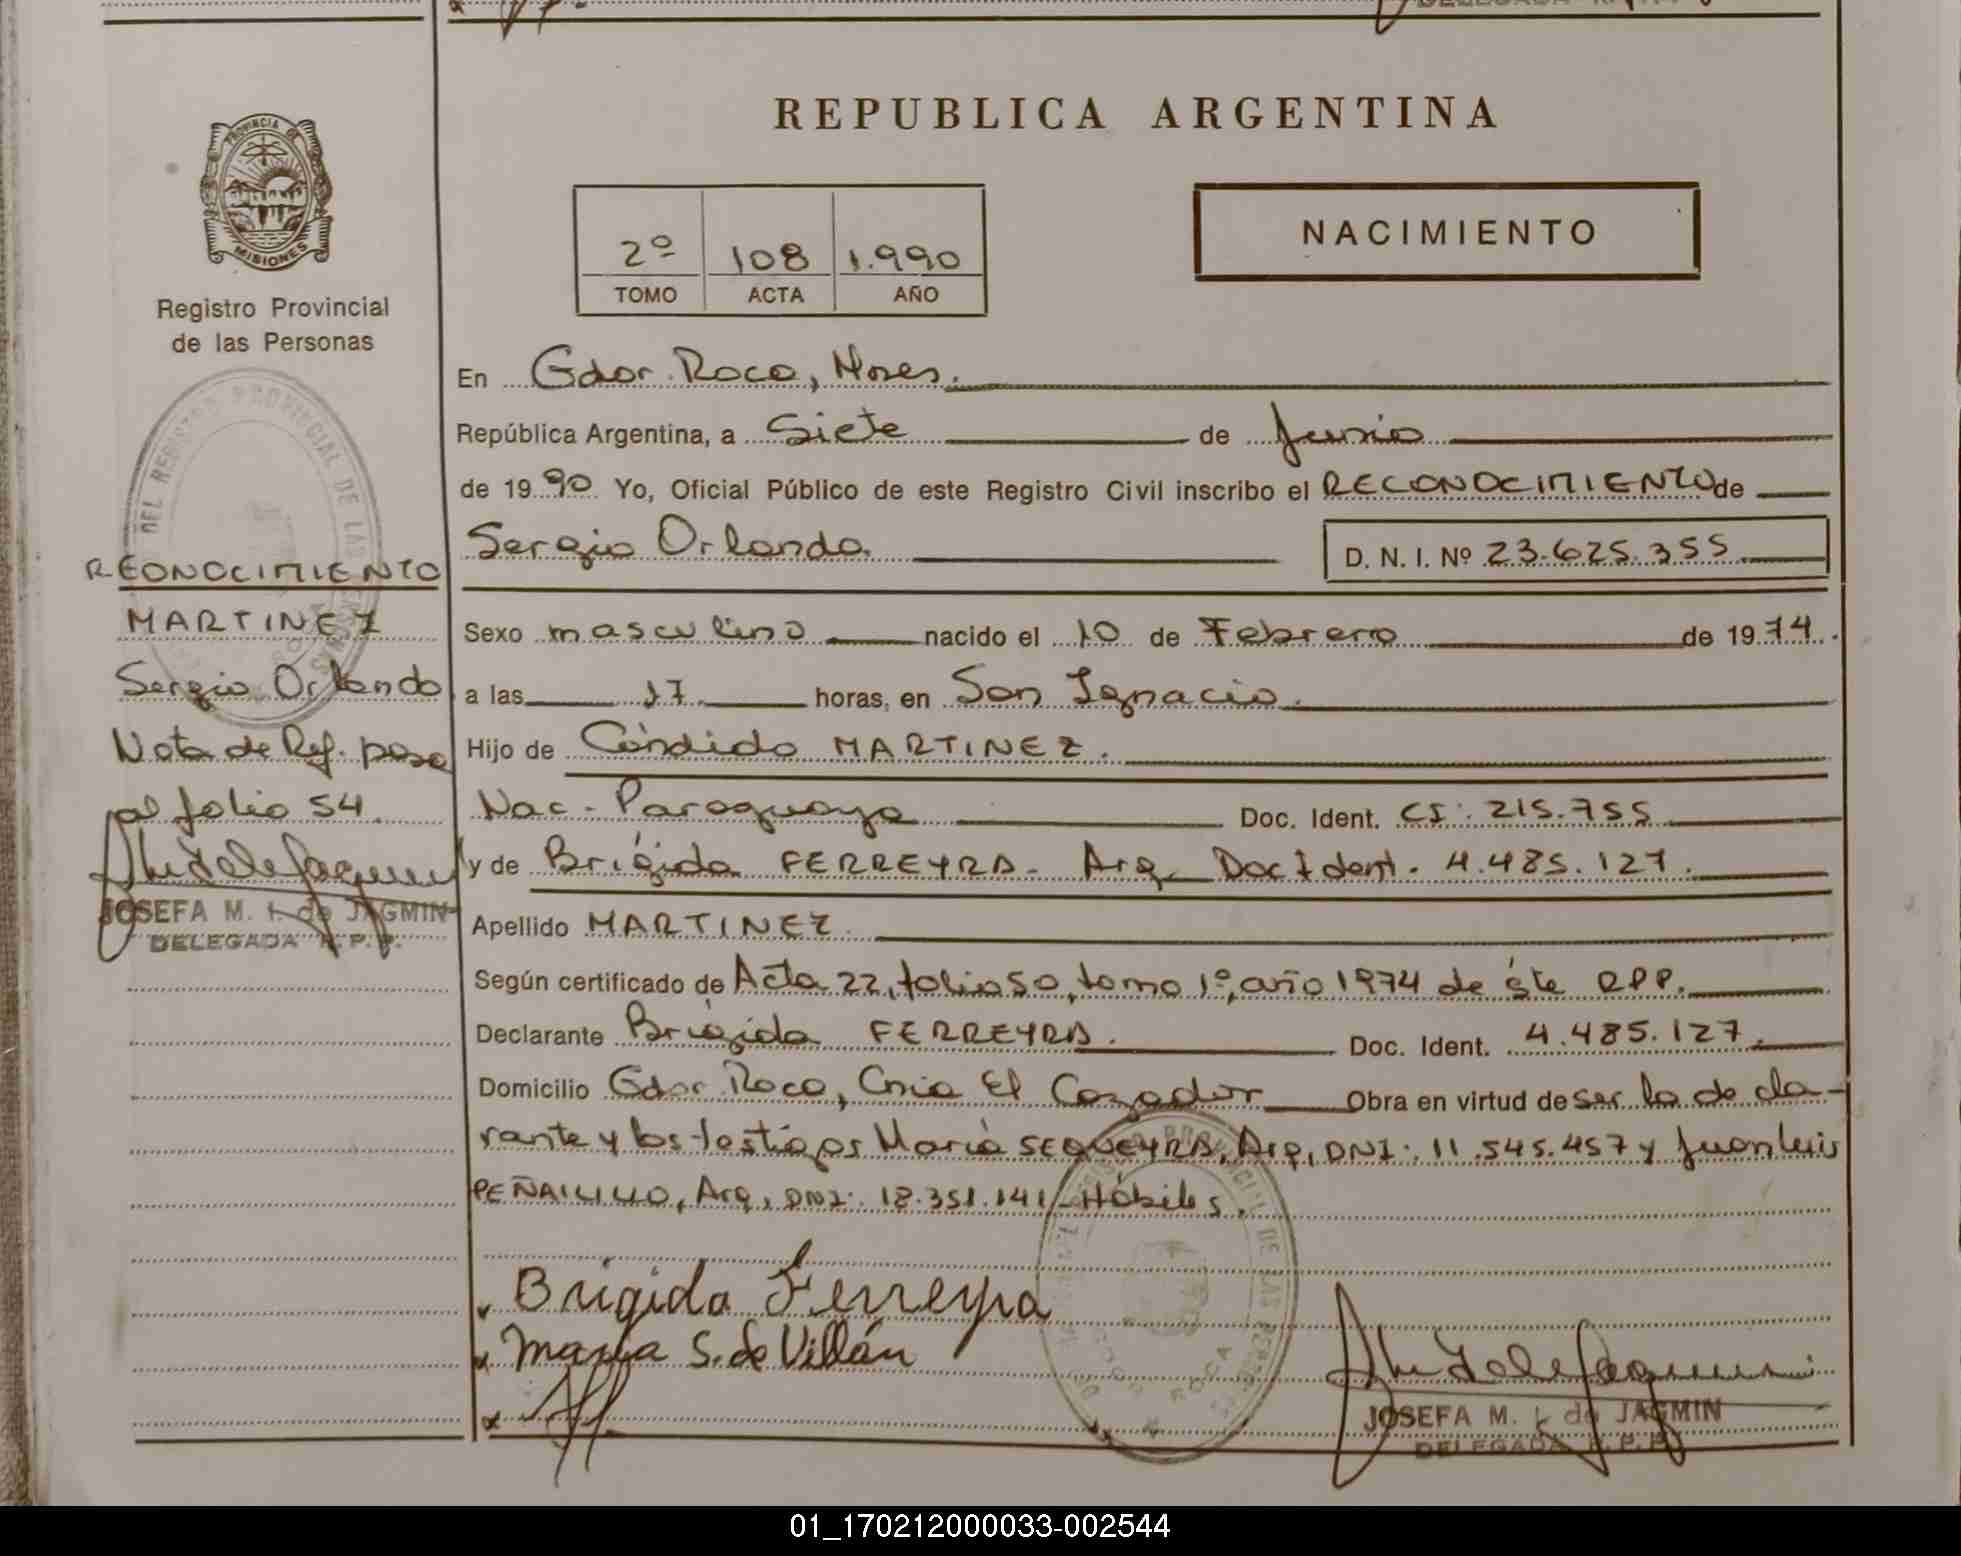 REPUBLICA ARGENTINA
PROVINCIA DE
MISIONES
Registro Provincial
de las Personas
2º 108 1.990
TOMO ACTA AÑO
NACIMIENTO
En Gdor. Roca, Mnes.
República Argentina, a Siete de Junio
de 1990 Yo, Oficial Público de este Registro Civil inscribo el RECONOCIMIENTO de
Sergio Orlando. D. N. I. Nº 23.625.355
Sexo masculino nacido el 10 de Febrero de 1974.
a las 17 horas, en San Ignacio.
Hijo de Cándido MARTINEZ.
Nac- Paraguaya Doc. Ident. CI: 215.755
y de Brígida FERREYRA- Arg- Doc Ident. 4.485.127.
Apellido MARTINEZ
Según certificado de Acta 22, folio 50, tomo 1º, año 1974 de éste RPP.
Declarante Brígida FERREYRA. Doc. Ident. 4.485.127.
Domicilio Gdor. Roca, Cnia El Cazador Obra en virtud de ser la decla-
rante y los testigos María SEQUEYRA, Arg, DNI: 11.545.457 y Juan Luis
PEÑAILILLO, Arg, DNI: 18.351.141/-Hábiles.
Brigida Ferreyra
Maria S. de Villán
JOSEFA M. de JAGMIN
DELEGADA R.P.P.
RECONOCIMIENTO
MARTINEZ
Sergio Orlando
Nota de Ref. pasa
al folio 54.
JOSEFA M. de JAGMIN
DELEGADA R.P.P.
DEL REGISTRO PROVINCIAL DE LAS PERSONAS
GDOR ROCA
01_170212000033-002544